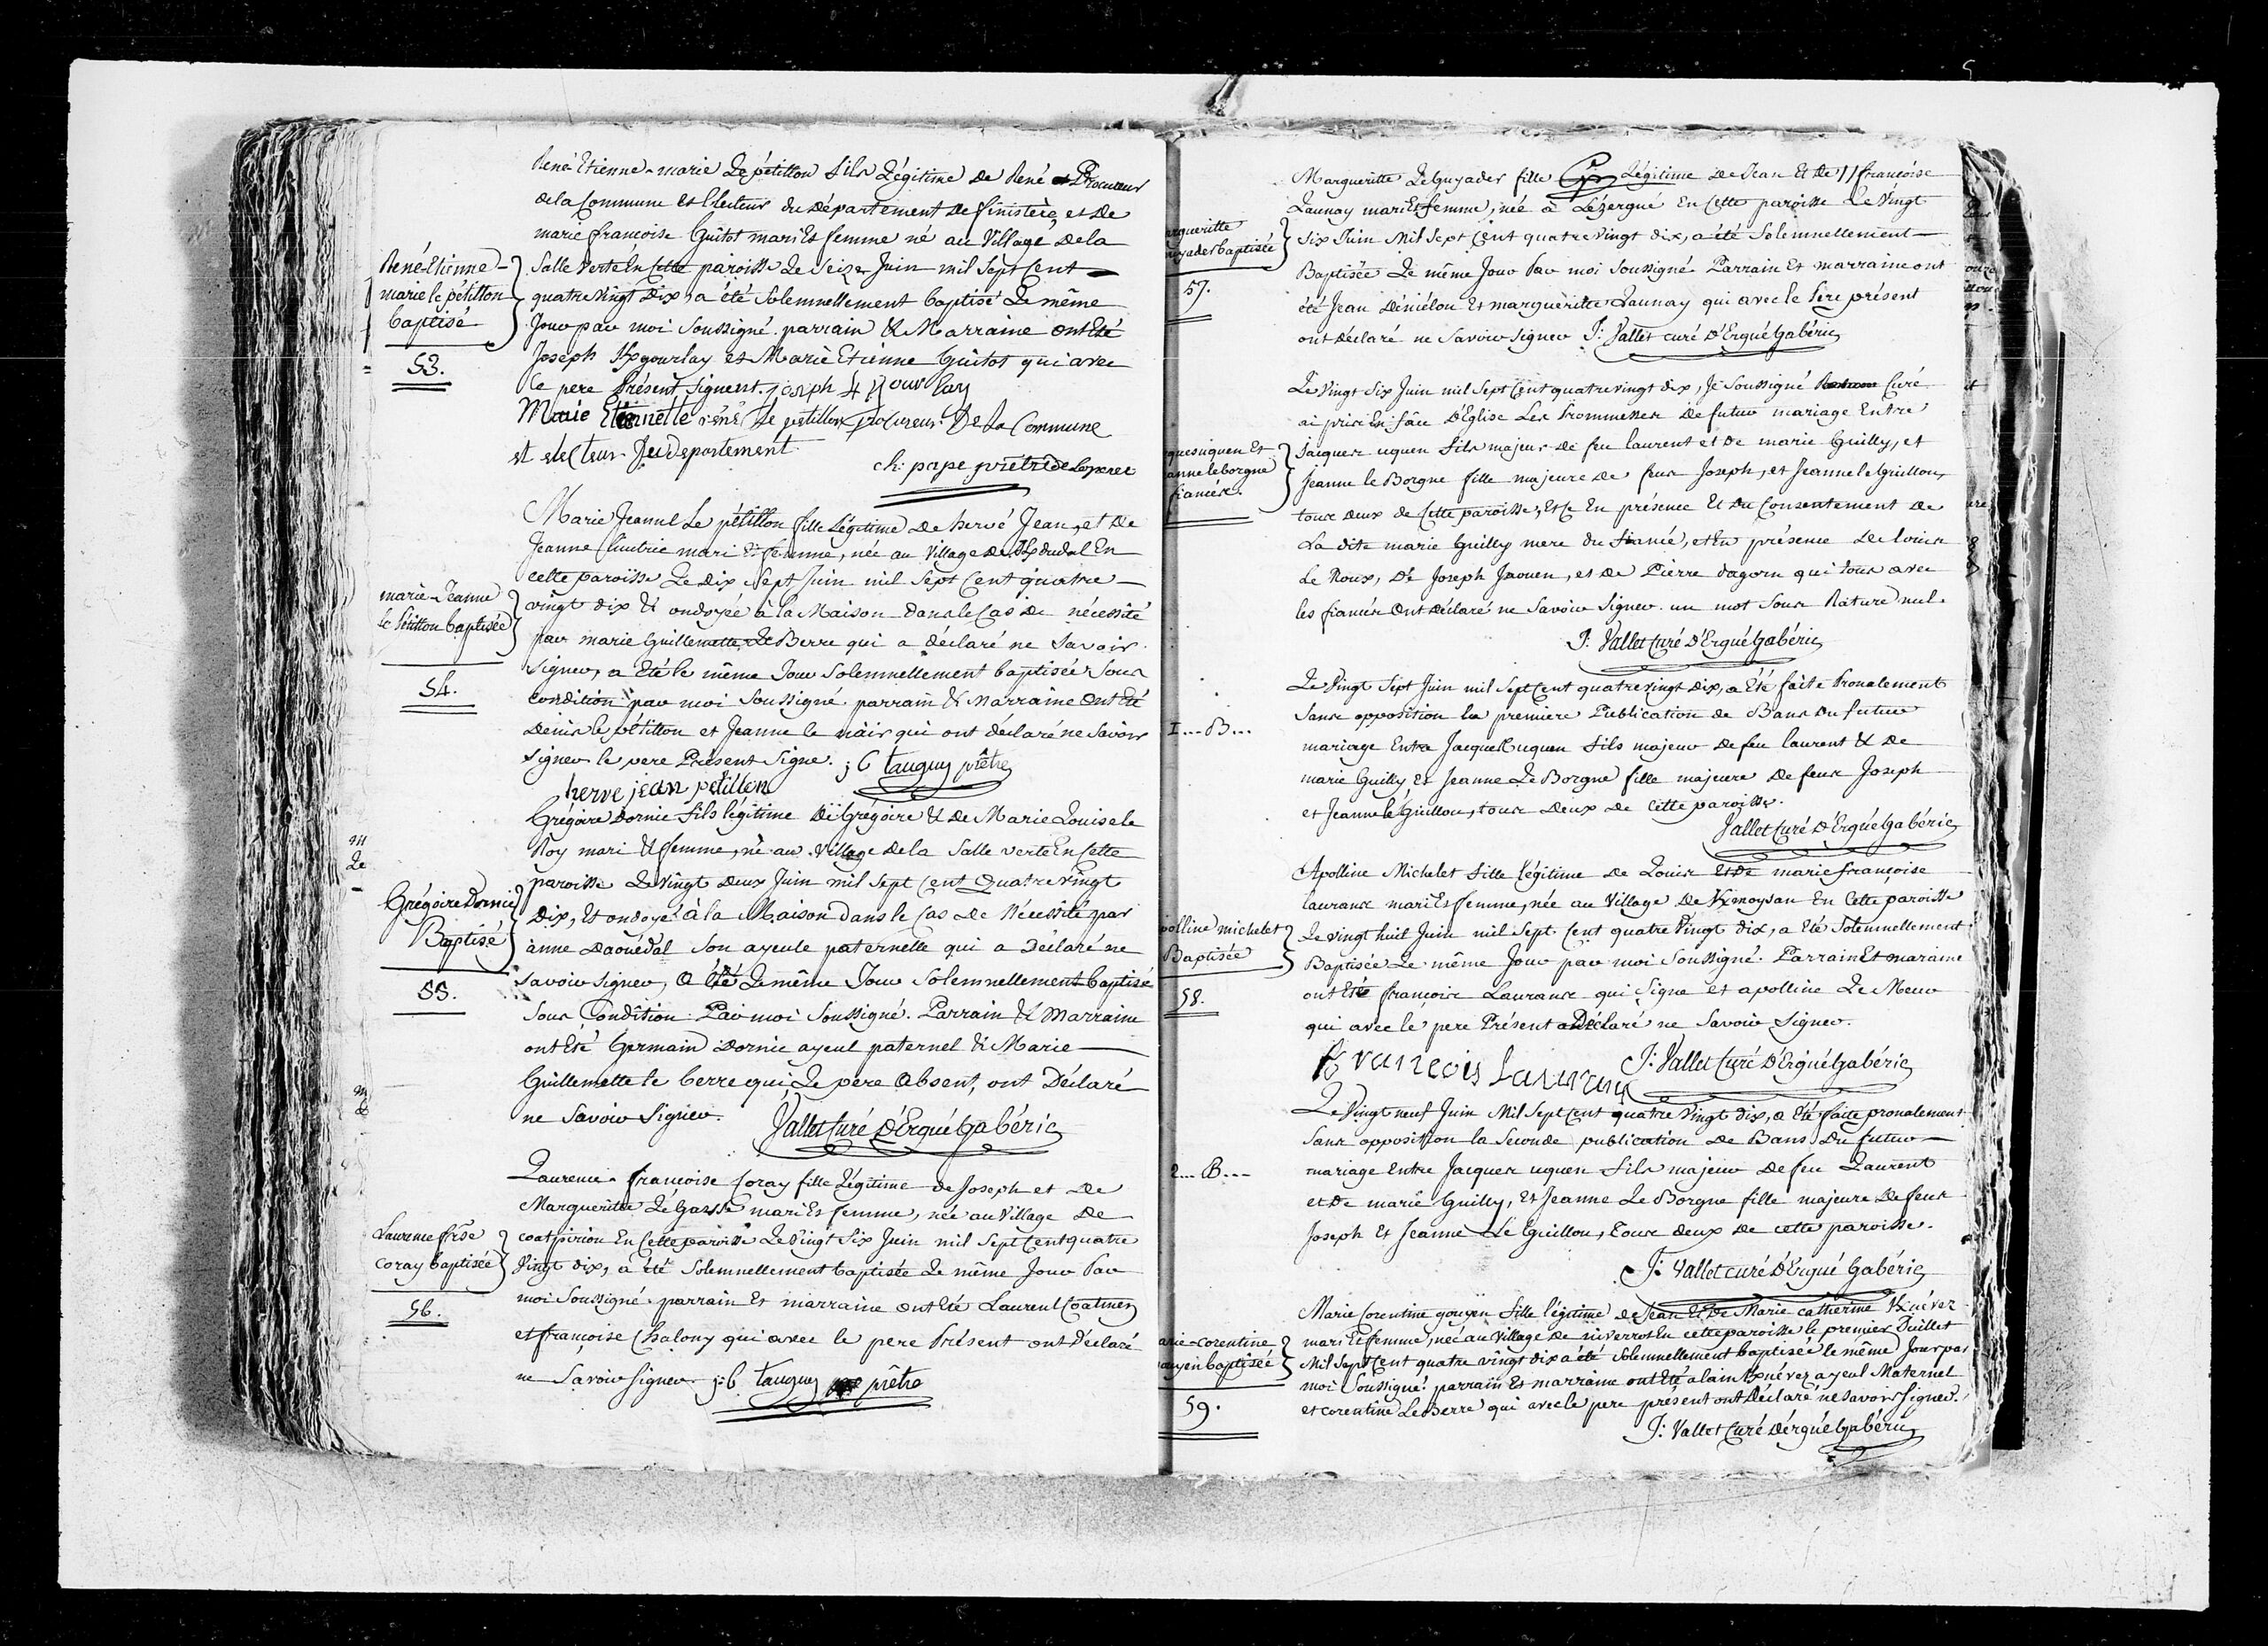 René Etienne-marie Le pétillon fils Légitime De René Procureur
de la Commune et Electeur du Département de finistère, et de
marie francoise Guitot mari Et femme né au Village de la
René-Etienne- Salle Verte En Cette paroisse Le Seize Juin mil sept Cent
marie le pétillon quatre Vingt Dix, a été Solemnellement baptisé Le même
baptisé Jour par moi Soussigné. parrain & Marraine ont Eté
53. Joseph Kgourlay et Marie Etienne Guitot qui avec
le pere Présent Signent. joseph
Marie Etiennette réné Le petillon procureur De La Commune
et electeur du departement
ch: pape prêtre de
Marie Jeanne Le pétillon fille Légitime De hervé Jean, et De
Jeanne mari Et femme, née au Village de En
cette paroisse Le Dix Sept Juin mil Sept Cent quatre
marie-Jeanne vingt dix & ondoyée à la Maison Dans le Cas De nécéssité
le Pétillon baptisée par marie Guillemette Le Berre qui a déclaré ne Savoir
Signer, a Eté le même Jour Solemnellement baptisée Sous
54. Condition par moi Soussigné. parrain & Marraine Ont Eté
Denis Le pétillon et Jeanne le nair qui ont déclaré ne Savoir
Signer le pere Présent Signe. j b tanguy prêtre
herve jean petillon
Grégoire Dornic fils légitime De Grégoire & De Marie Louise le
Roy mari & femme, né au Village De la Salle verte En Cette
paroisse Le Vingt Deux Juin mil Sept Cent Quatre Vingt
Grégoire Dornic Dix, Et ondoyé à la Maison Dans le Cas De Nécéssité par
Baptisé anne Daouédal Son ayeule paternelle qui a Déclaré ne
Savoir Signer, a été Le même Jour Solemnellement baptisé
55. Sous Condition Par moi Soussigné. Parrain & Marraine
ont Eté Germain Dornic ayeul paternel & Marie
Guillemette le berre qui, Le père Absent, ont Déclaré
ne Savoir Signer. Vallet Curé D'Ergué Gabéric
Laurence francoise Coray fille Légitime de Joseph et De
Margueritte Le Gars mari Et femme, née au Village De
Laurence frse coatpirion En Cette paroisse Le Vingt Six Juin mil Sept Cent quatre
coray baptisée Vingt dix, a été Solemnellement baptisée Le même Jour Par
56. moi Soussigné. parrain Et marraine ont Eté Laurent Coatmen
et francoise Chalony qui avec le pere Présent ont Déclaré
ne Savoir Signer. j: b. tanguy prêtre
Margueritte Le Guyader fille Légitime De Jean Et De francoise
Launay mari Et femme, née a Lézergué En Cette paroisse Le Vingt
rgueritte Six Juin Mil Sept Cent quatre Vingt Dix, a été Solemnellement
uyader baptisée Baptisée Le même Jour Par moi Soussigné Parrain Et marraine ont
57. été Jean Déniélou Et margueritte Launay qui avec le Pere présent
ont déclaré ne Savoir Signer J: Vallet curé D'Ergué Gabéric
Le Vingt Six Juin mil Sept Cent quatre vingt dix, Je Soussigné Curé
ai pris En face D'Eglise Les Prommesses De futur mariage Entre
ques uguen Et Jacques uguen fils majeur De feu laurent et De marie Guilly, et
anne le borgne Jeanne le Borgne fille majeure De feus Joseph, et Jeanne le Guillou,
fiancés. tous deux de Cette paroisse, Et Ce En présence Et Du Consentement De
La dite marie Guilly mere du fiancé, et En présence De Louis
Le Roux, De Joseph Jaouen, et De Pierre dagorn qui tous avec
les fiancés Ont Déclaré ne Savoir Signer. un mot Sous Rature nul.
J: Vallet Curé D'Ergué Gabéric
Le Vingt Sept Juin mil Sept Cent quatre vingt Dix, a Eté faite Pronalement
I... B... Sans opposition la premiere Publication de Bans Du futur
mariage Entre Jacques uguen fils majeur De feu laurent & De
marie Guilly Et Jeanne Le Borgne fille majeure De feus Joseph
et Jeanne le Guillou, tous Deux De Cette paroisse.
Vallet Curé D'Ergué Gabéric
Apolline Michelet fille légitime De Louis Et De marie francoise
laurans mari Et femme, née au Village De Kmoysan En Cette paroisse
olline michelet Le vingt huit Juin mil Sept Cent quatre Vingt dix, a Eté Solemnellement
Baptisée Baptisée Le même Jour par moi Soussigné. Parrain Et maraine
58. ont Eté francois Laurans qui Signe et apolline Le Meur
qui avec le pere Présent a Déclaré ne Savoir Signer.
francois Laurans J: Vallet Curé D'Ergué Gabéric
Le Vingt neuf Juin Mil Sept Cent quatre Vingt dix, a Eté faite pronalement
Sans opposition la Seconde publication De Bans Du futur
2... B... mariage Entre Jacques uguen fils majeur De feu Laurent
et De marie Guilly, Et Jeanne Le Borgne fille majeure De feus
Joseph Et Jeanne Le Guillou, tous deux De cette paroisse.
J: Vallet curé D'Ergué Gabéric
Marie Corentine gouyen fille légitime de Jean & De Marie catherine Knévez
arie-corentine mari Et femme, née au Village de niverrot En cette paroisse le premier Juillet
ouyen baptisée Mil Sept Cent quatre vingt dix a été Solemnellement baptisée le même Jour par
moi Soussigné. parrain Et marraine ont Eté alain Knévez ayeul Maternel
59. et corentine Le Berre qui avec le pere présent ont Déclaré ne Savoir Signer.
J: Vallet Curé d'ergué Gabéric